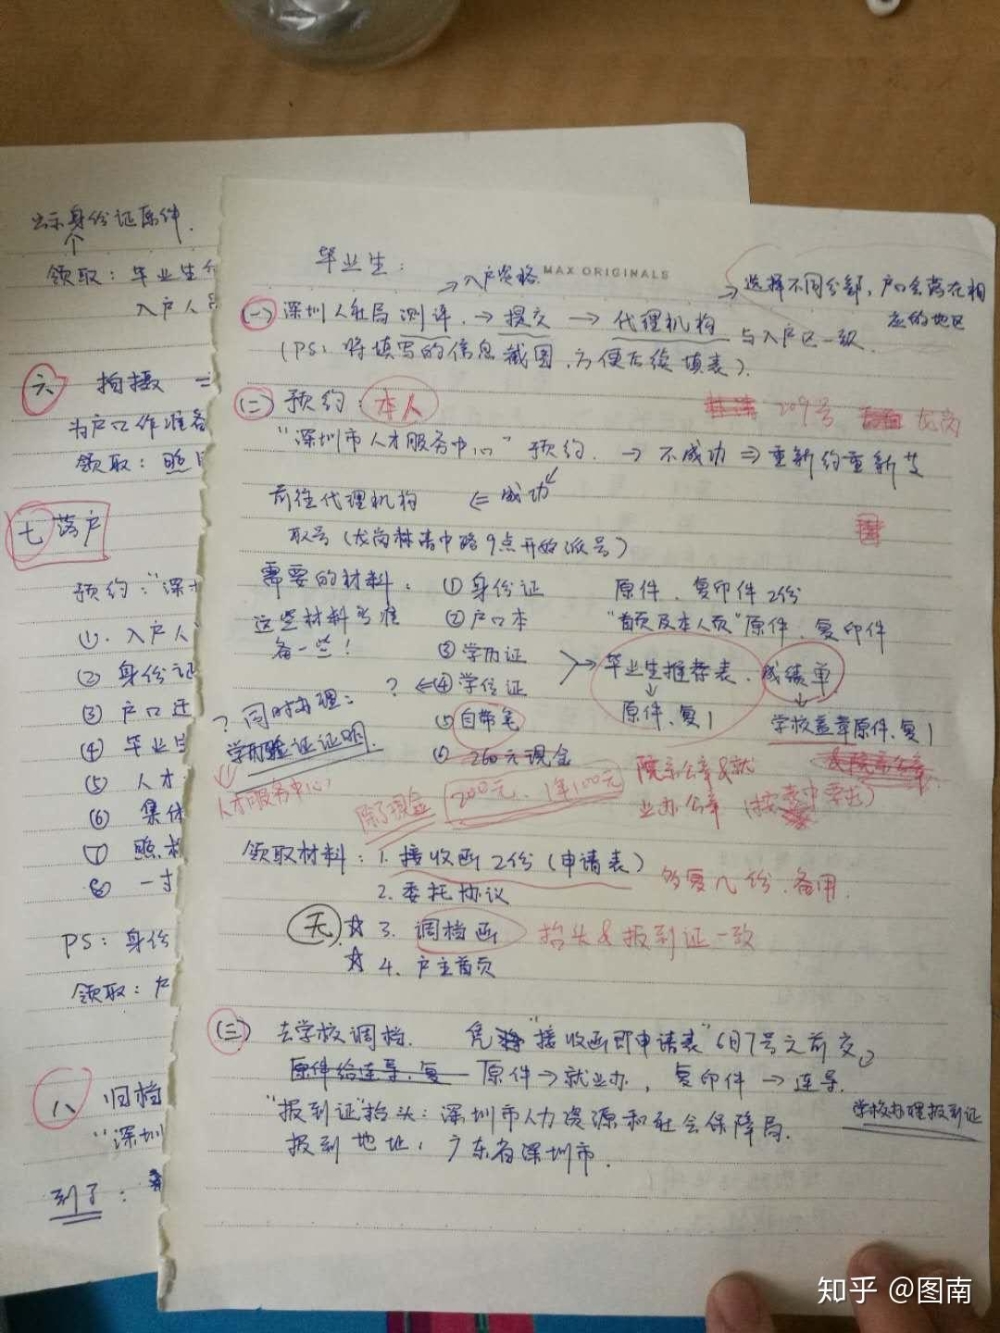 出示身份证原件.
领取: 毕业生
入户人
六 拍摄
为户口作准备
领取: 照
七 落户
预约: "深
①. 入户人
② 身份证
③ 户口迁
④ 毕业
⑤ 人才
⑥ 集体
⑦ 照
⑧ 一寸
PS: 身份
领取:
八 归档
"深圳
到了:
毕业生:
MAX ORIGINALS
→入户资格.
→选择不同分部, 户口会落在相
应的地区
(一) 深圳人社局测评. → 提交 → 代理机构 与入户区一致.
(PS: 将填写的信息截图, 方便后续填表).
(二) 预约: 本人
209号 龙岗
"深圳市人才服务中心" 预约. → 不成功 ⇒ 重新约重新
前往代理机构 ⇐ 成功
取号 (龙岗 9点开始派号)
需要的材料: ① 身份证 原件、复印件2份
这些材料多准 ② 户口本 "首页及本人页" 原件、复印件
备一些! ③ 学历证 毕业生推荐表. 成绩单
? ⇐ ④ 学位证 原件、复1 学校盖章原件、复1
? 同时办理: ⑤ 自带笔
学历验证证明. ⑥ 260元现金
人才服务中心, 除了现金 200元、1年100元 院系公章&就
业办公章
领取材料: 1. 接收函2份 (申请表) 多复几份、备用.
2. 委托协议
无 ☆ 3. 调档函 抬头&报到证一致
☆ 4. 户主首页
(三) 去学校调档. 凭"接收函即申请表" 6月7号之前交
原件给连导、复 原件→就业办, 复印件→连导.
"报到证"抬头: 深圳市人力资源和社会保障局. 学校办理报到证
报到地址: 广东省深圳市.
知乎 @图南